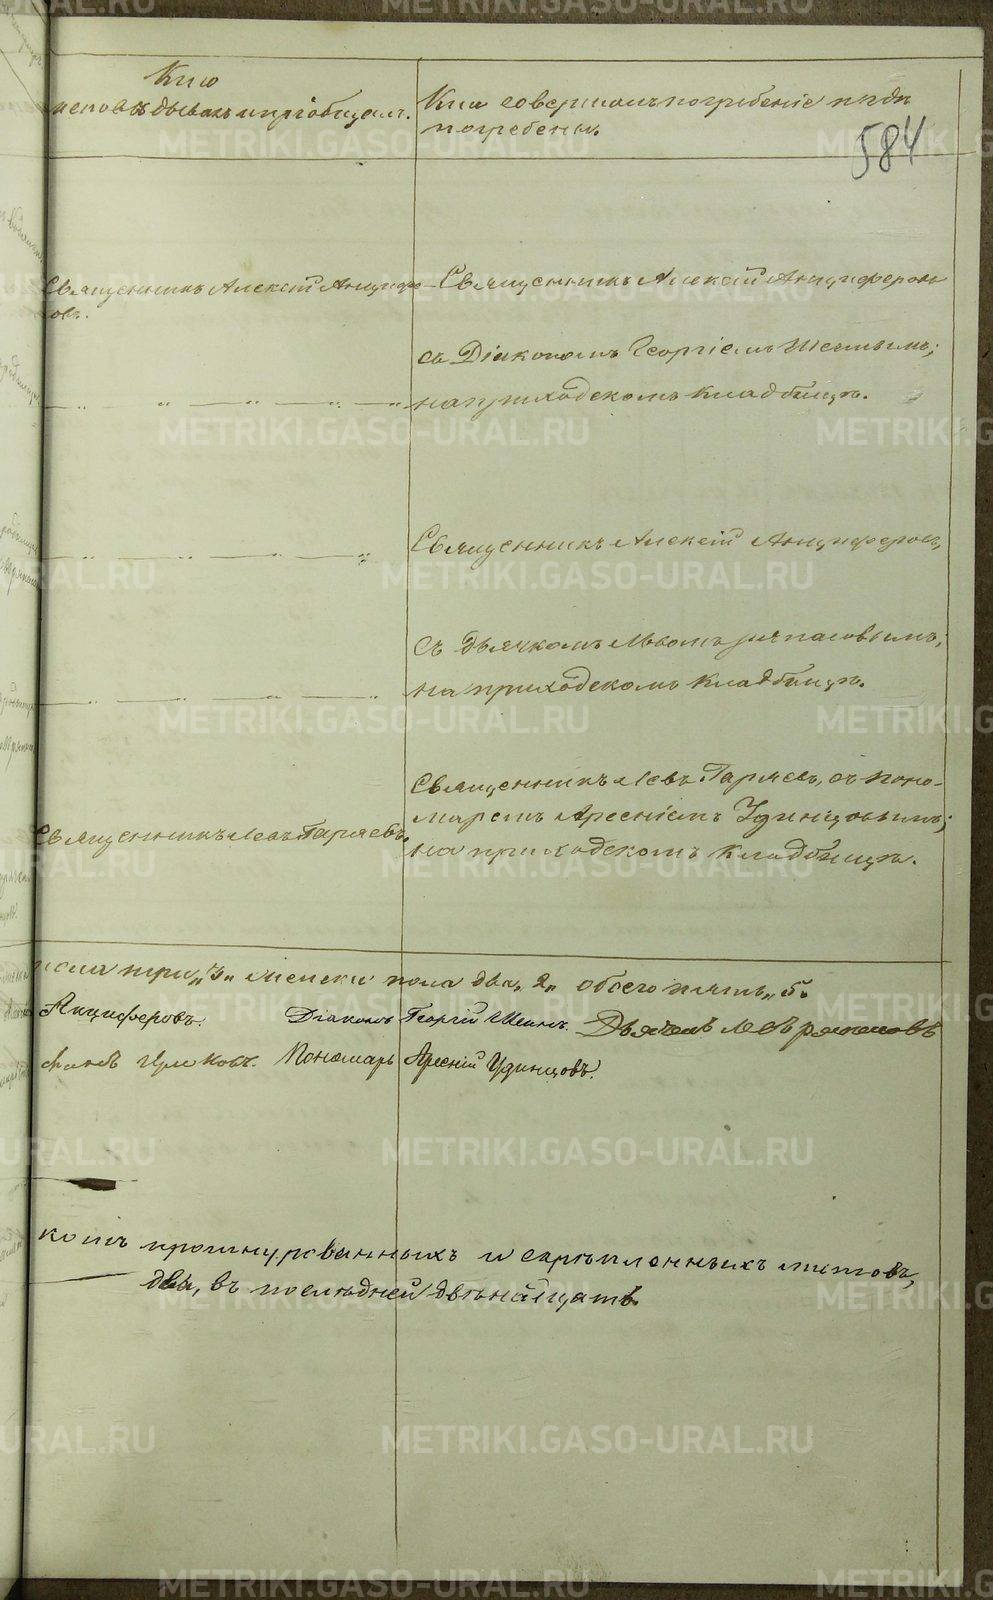 Кто
исповѣдывалъ и пріобщалъ.
Кто совершалъ погребеніе и гдѣ
погребены.
584
Священникъ Алексій Анциферовъ.
Священникъ Алексій Анциферовъ
съ Діакономъ Георгіемъ
на приходскомъ кладбищѣ.
Священникъ Алексій Анциферовъ,
съ Дьячкомъ Львомъ
на приходскомъ кладбищѣ.
Священникъ Левъ Гаряевъ.
Священникъ Левъ Гаряевъ, съ поно-
маремъ Арсеніемъ Удинцовымъ;
на приходскомъ кладбищѣ.
пола три „3„ женска пола два„ 2„ обоего пять„ 5.
Анциферовъ. Діаконъ Георгій Дьячекъ Левъ
Пономарь Арсеній Удинцовъ.
прошнурованныхъ и скрѣпленныхъ листовъ,
два, въ послѣдней двѣнадцать.
METRIKI.GASO-URAL.RU